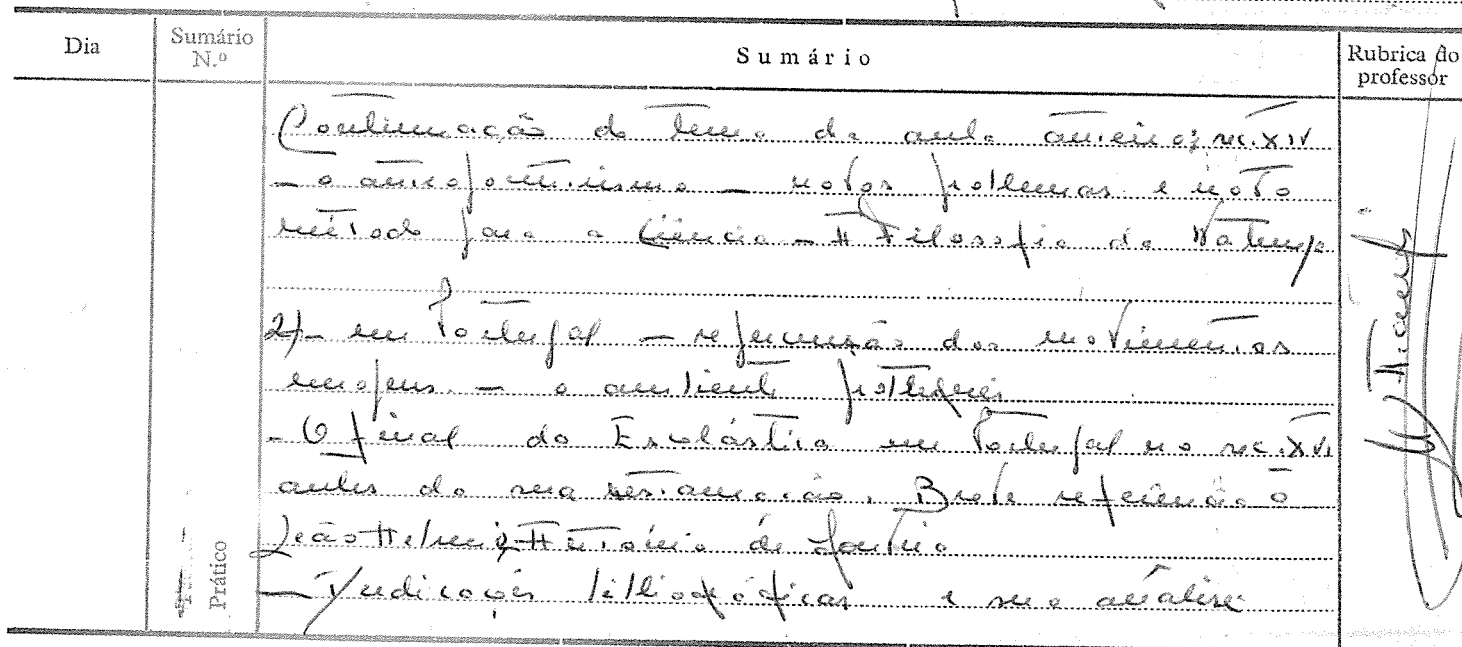 Dia
Sumário N.º
Sumário
Rubrica do professor
Continuação do tema da aula anterior; sec. XIV
— o antropocentrismo — novos problemas e novo
método para a Ciência — A Filosofia da Natureza
2) — em Portugal — repercussão dos movimentos
europeus — o ambiente português
- O final da Escolástica em Portugal no sec. XVI
antes da sua restauração. Breve referência a
Leão Hebreu e António de Gouveia
— Indicações bibliográficas e sua análise
Prático